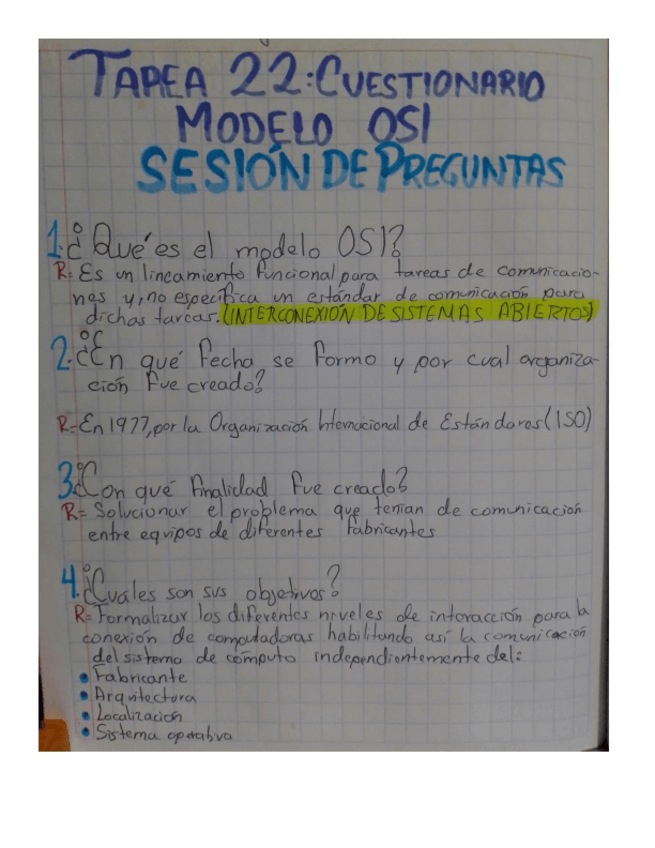 TAREA 22: CUESTIONARIO
MODELO OSI
SESIÓN DE PREGUNTAS
1. ¿Qué es el modelo OSI?
R= Es un lineamiento funcional para tareas de comunicacio-
nes y, no especifica un estándar de comunicación para
dichas tareas. (INTERCONEXIÓN DE SISTEMAS ABIERTOS)
2. ¿En qué fecha se formo y por cual organiza-
ción fue creado?
R= En 1977, por la Organización Internacional de Estándares (ISO)
3. ¿Con qué finalidad fue creado?
R= Solucionar el problema que tenían de comunicación
entre equipos de diferentes fabricantes
4. ¿Cuáles son sus objetivos?
R= Formalizar los diferentes niveles de interacción para la
conexión de computadoras habilitando así la comunicación
del sistema de cómputo independientemente del:
• Fabricante
• Arquitectura
• Localización
• Sistema operativo